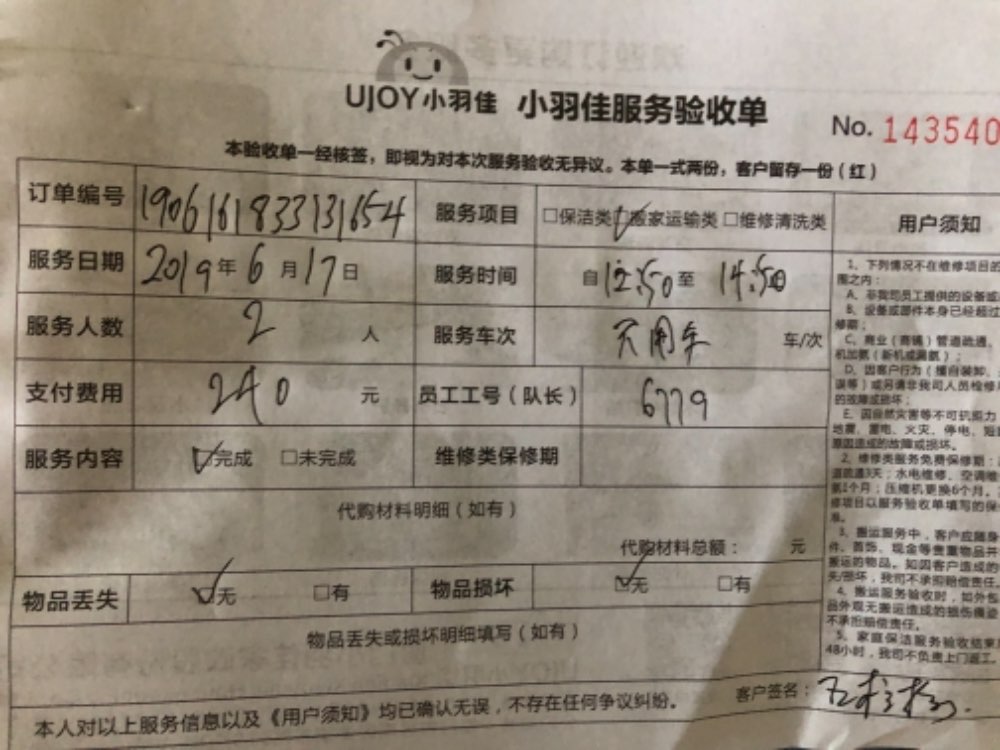 UJOY小羽佳 小羽佳服务验收单
No. 143540
本验收单一经核签，即视为对本次服务验收无异议。本单一式两份，客户留存一份（红）
订单编号 190616183313​1654 服务项目 □保洁类 ☑搬家运输类 □维修清洗类
服务日期 2019年6月17日 服务时间 自12:50至14:50
服务人数 2 人 服务车次 不用车 车/次
支付费用 240 元 员工工号（队长） 6779
服务内容 ☑完成 □未完成 维修类保修期
代购材料明细（如有）
代购材料总额： 元
物品丢失 ☑无 □有 物品损坏 ☑无 □有
物品丢失或损坏明细填写（如有）
本人对以上服务信息以及《用户须知》均已确认无误，不存在任何争议纠纷。 客户签名：
用户须知
1、下列情况不在维修项目的
围之内：
A、非我司员工提供的设备或
B、设备或部件本身已经超过
修期；
C、商业（商铺）管道疏通、
机加氨（新机或漏氨）；
D、因客户行为（擅自装卸、
误等）或另请非我司人员检修
的故障或损坏；
E、因自然灾害等不可抗力
地震、雷电、火灾、停电、短
原因造成的故障或损坏。
2、维修类服务免费保修期：
道疏通3天；水电维修、空调维
氨1个月；压缩机更换6个月。
修项目以服务验收单填写的保
准。
3、搬运服务中，客户应随身
件、首饰、现金等贵重物品并
搬运的物品。如因客户造成的
失/损坏，我司不承担赔偿责任
4、搬运服务验收时，如外包
品外观无搬运造成的损伤痕迹
不承担赔偿责任。
5、家庭保洁服务验收结束
48小时，我司不负责上门返工。